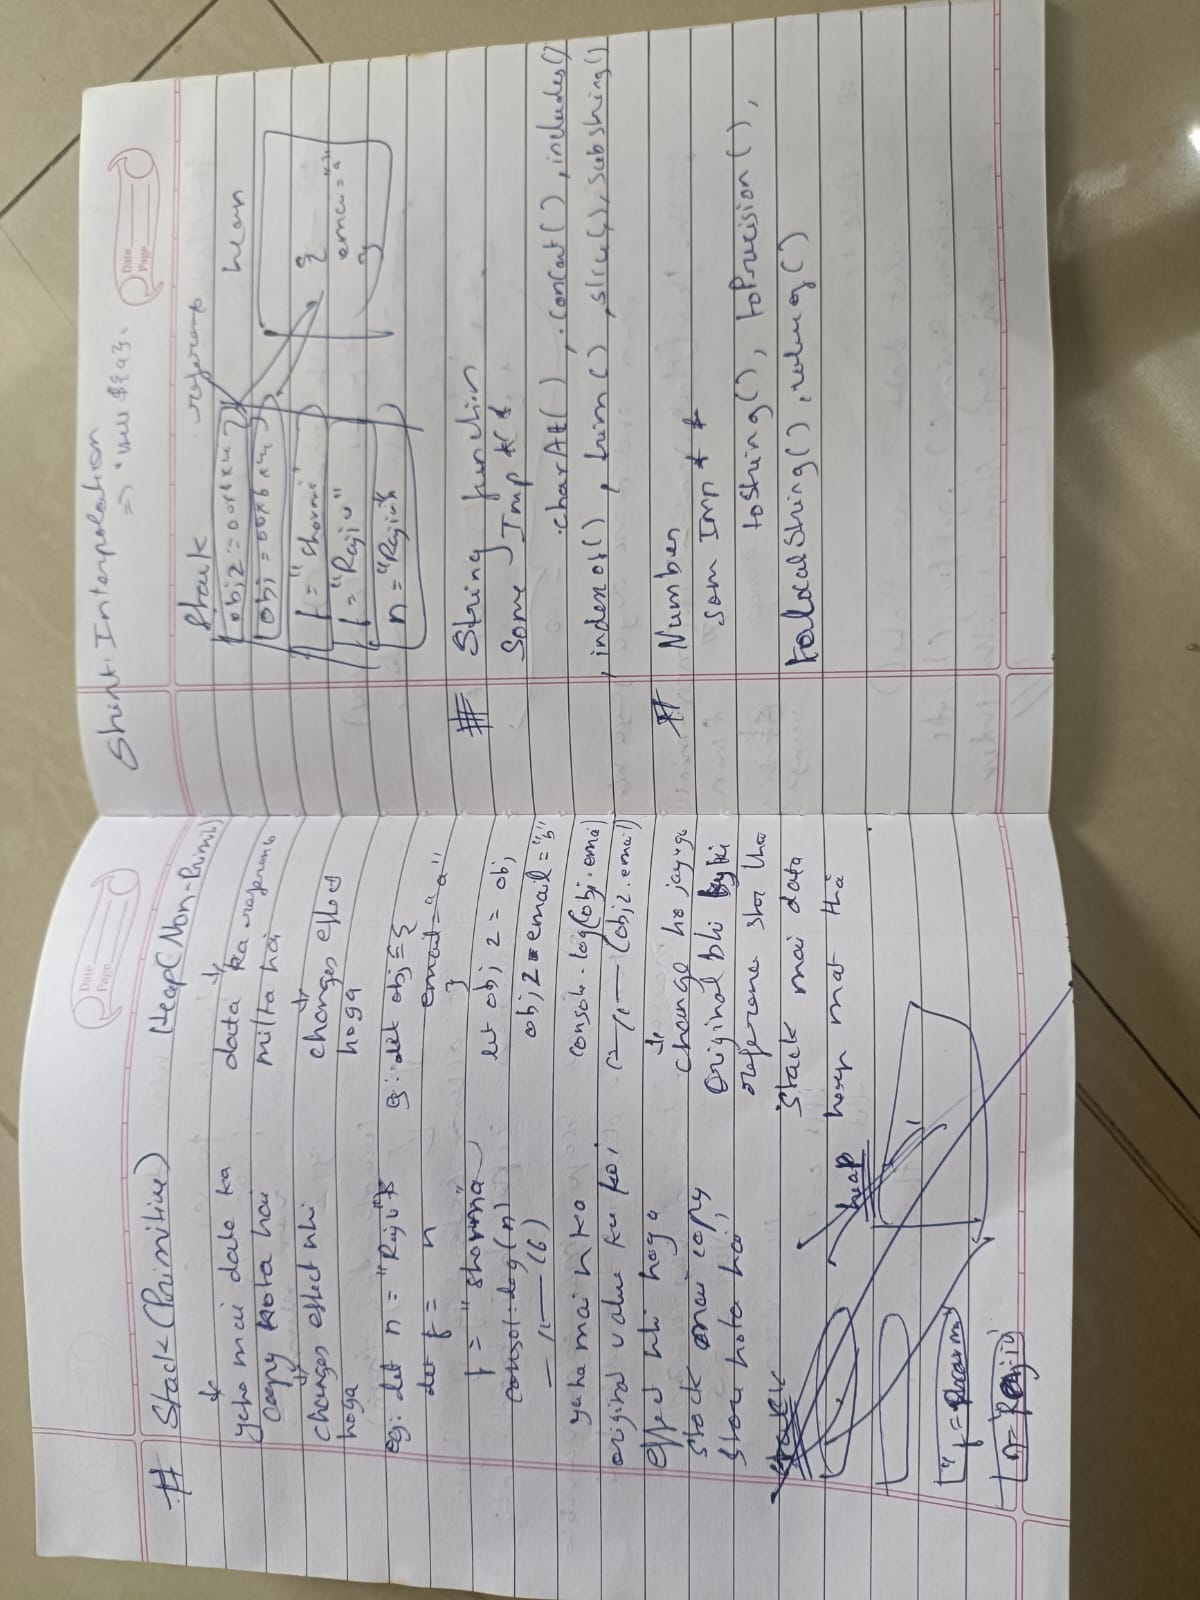 Date
Page
# Stack (Primitive)
yaha mai data ka
copy hota hai
changes effect nhi
hoga
eg: let n = "Rajiv"
let f = n
f = "sharma"
consol.log(n)
— 11 — (f)
yaha mai n ka
original value ku koi
effect nhi hoga
Stack mai copy
store hota hai,
Stack
heap
n = "Rajiv"
Heap (Non-Primit)
data ka referenc
milta hai
changes effect
hoga
eg: let obj = {
email = "a"
}
let obj2 = obj
obj2 = email = "b"
consol.log(obj.email)
(— 11 — (obj2.email)
change ho jayega
original bhi kyki
reference stor tha
stack mai data
heap mai tha
Date
Page
String Interpolation
Stack
heap
obj2 = 00xbxu
obj = 00xbxu
f = "Sharma"
f = "Rajiv"
n = "Rajiv"
{
email = "a"
}
# String function
Some Imp **
.charAt(), .concat(), includes()
, indexOf(), trim(), slice(), substring()
# Number
Som Imp **
toString(), toPrecision(),
toLocalString(), valueOf()